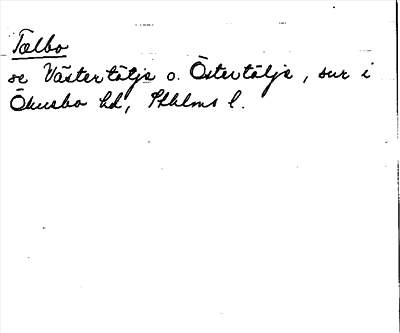 Tælbo
se Västertälje o. Östertälje, sur i
Öknebo hd, Sthlms l.